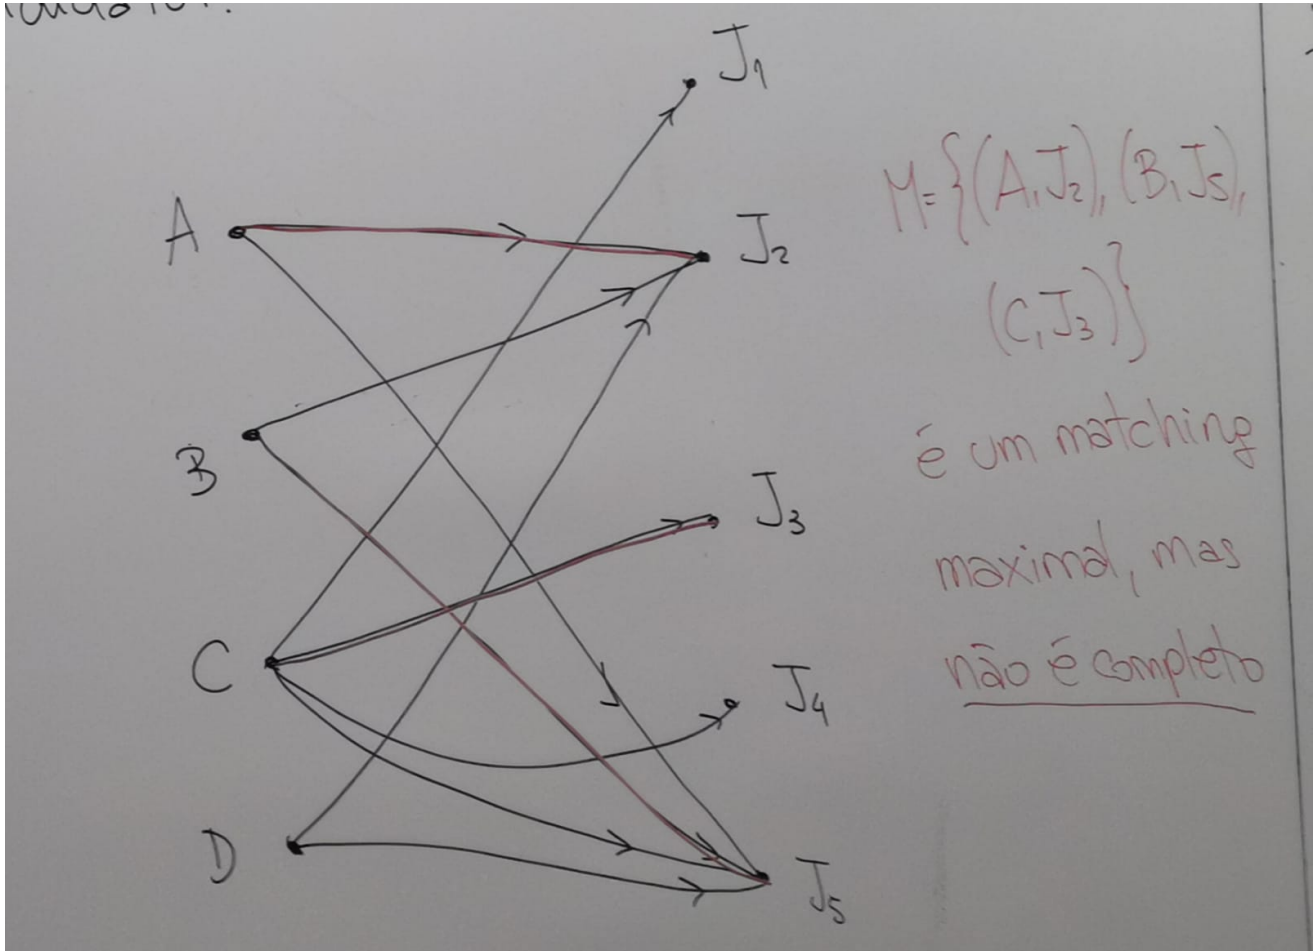 J₁
A
J₂
B
J₃
C
J₄
D
J₅
M={(A,J₂),(B,J₅),
(C,J₃)}
é um matching
maximal, mas
não é completo